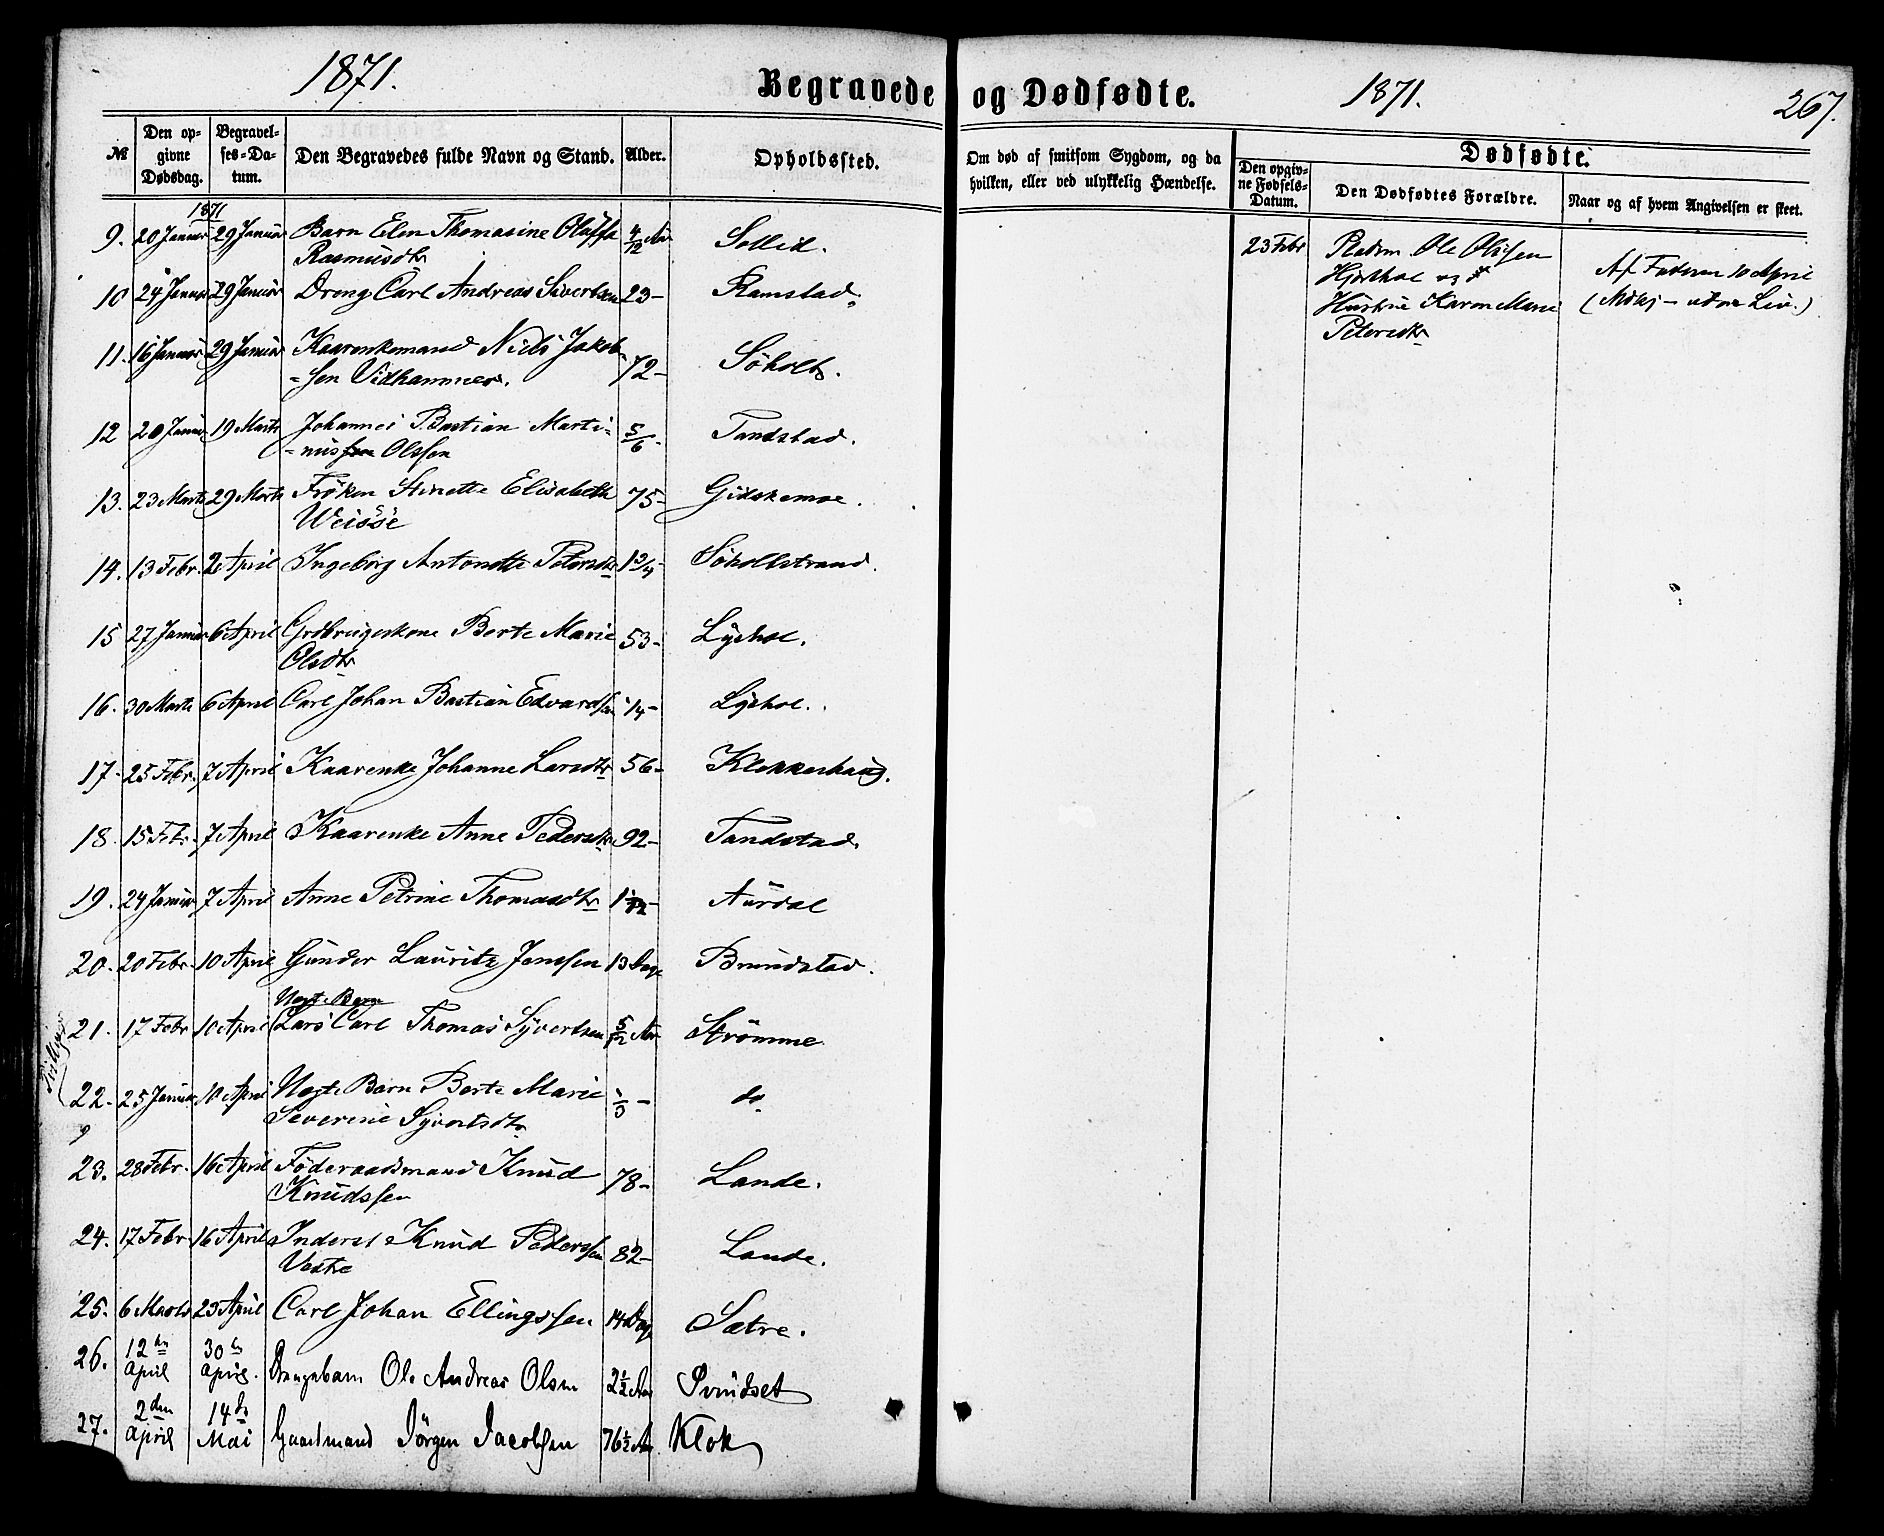 1871.
Begravede og Dødfødte.
1871.
267.
№
Den opgivne Dødsdag.
Begravelses-Datum.
Den Begravedes fulde Navn og Stand.
Alder.
Opholdssted.
Om død af smitsom Sygdom, og da hvilken, eller ved ulykkelig Hændelse.
Dødfødte.
Den opgivne Fødsels-Datum.
Den Dødfødtes Forældre.
Naar og af hvem Angivelsen er skeet.
1871
9. 20 Januar 29 Januar Barn Elen Thomasine Oluffa 4/12 Aar Sollid.
Rasmusdtr
10 24 Januar 29 Januar Dreng Carl Andreas Sivertsen 23- Ramstad
11. 16 Januar 29 Januar Kaarenkemand Niels Jakob-
=sen Vidhammer. 72- Søholt.
12 20 Januar 19 Marts Johannes P. Bastian Marti-
=nussen Olssen 5/6- Tandstad.
13. 23 Marts 29 Marts Frøken Stinette Elisabeth 75- Gidskemoe.
Weisse
14. 13 Febr. 2 April Ingeborg Antonette Petersdtr 1 3/4- Søholtstrand.
15 27 Januar 6 April Grdbrugeskone Berte Marie 53- Lyshol.
Olsdtr
16. 30 Marts 6 April Carl Johan Bastian Edvardsen 14- Lyshol.
17. 25 Febr. 7 April Kaarenke Johanne Larsdtr 56- Klokkerhaug.
18. 15 Febr. 7 April Kaarenke Anne Pedersdtr 92- Tandstad.
19. 24 Januar 7 April Anne Petrine Thomasdtr Aurdal
20. 20 Febr. 10 April Gunder Lauritz Jenssen 13 Dage Brundstad.
Tvillinger
21. 17 Febr 10 April Uægte Barn
Lars Carl Thomas Syvertsen 5/12 Aar Strømme
22. 25 Januar 10 April Uægte Barn Berte Marie do
Severine Syvertsdtr
23. 28 Febr. 16 April Føderaadsmand Knud 78- Lande.
Knudssen
24. 17 Febr 16 April Inderst Knud Pederssen 82- Lande.
Vestre
25. 6 Marts 23 April Carl Johan Ellingssen 14 Dage Sætre.
26. 12te April 30te April. Drengebarn Ole Andreas Olsen 2½ Aar Svindset
27. 2den April 14de Mai Gaardmand Jörgen Jacobsen 76½ Aar Klok
23 Febr
Pladsm Ole Olssen
Hjorthol og
Hustrue Karen Marie
Petersdtr
Af Faderen 10 April